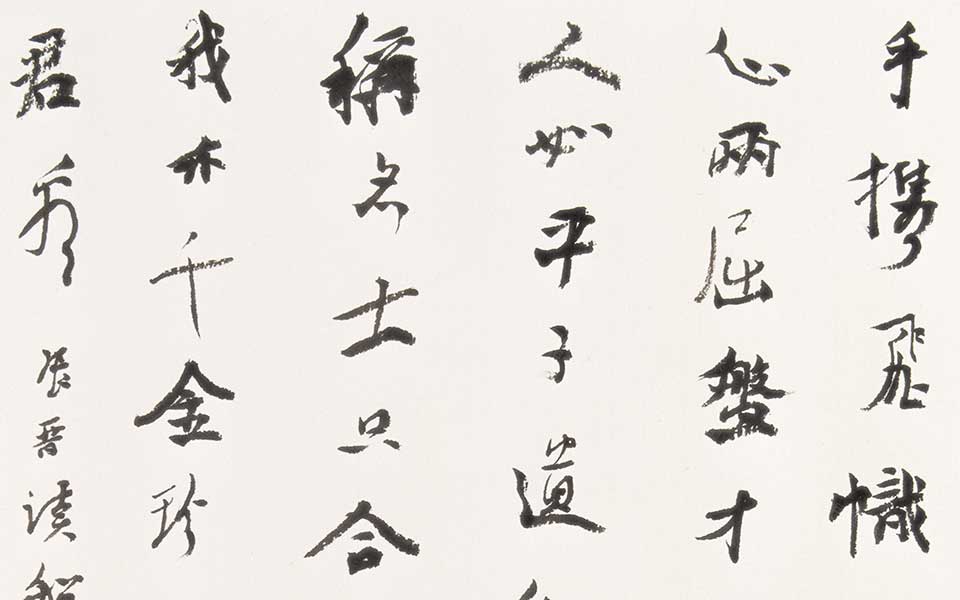 手携飛幟
心兩屈盤才
人必平子道
稱名士只合
我亦千金珍
君房 辰晉讀